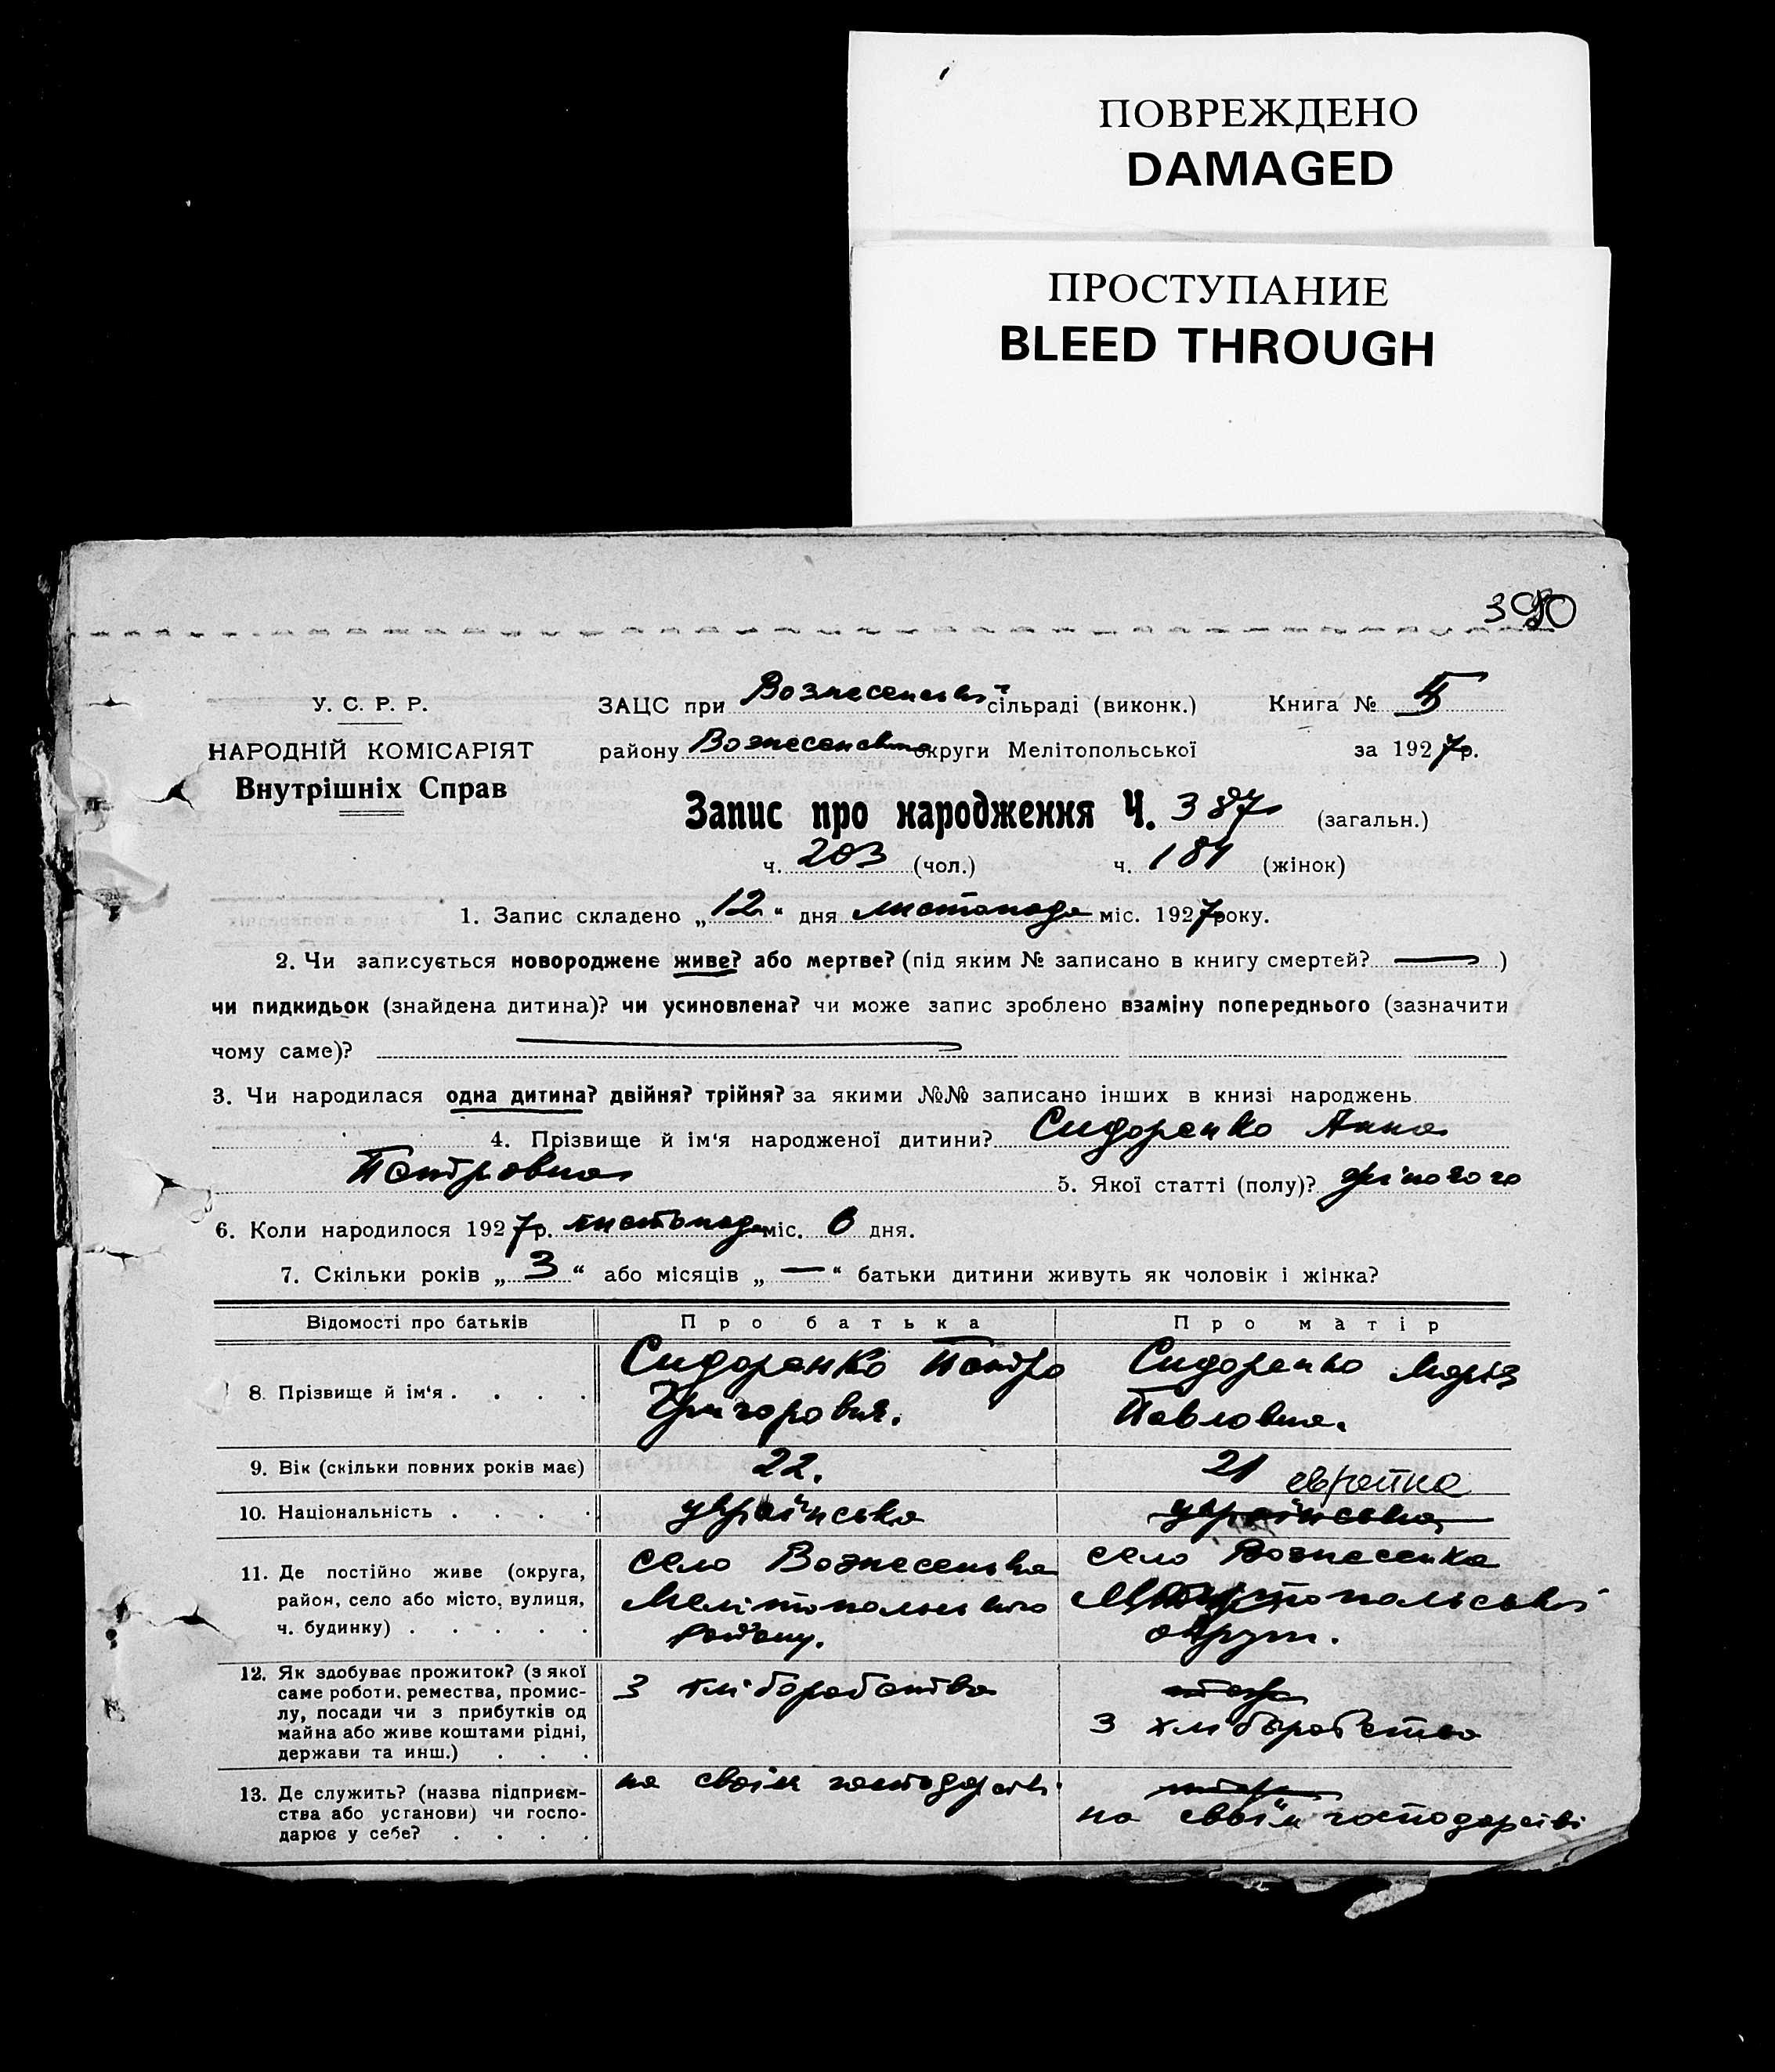 ПОВРЕЖДЕНО
DAMAGED
ПРОСТУПАНИЕ
BLEED THROUGH
У. С. Р. Р.
НАРОДНІЙ КОМІСАРІЯТ
Внутрішніх Справ
ЗАЦС при Вознесенській сільраді (виконк.) Книга № 5
району Вознесенська округи Мелітопольської за 1927р.
Запис про народження Ч. 387 (загальн.)
ч. 203 (чол.) ч. 184 (жінок)
1. Запис складено „12“ дня листопада міс. 1927року.
2. Чи записується новороджене живе? або мертве? (під яким № записано в книгу смертей? — )
чи пидкидьок (знайдена дитина)? чи усиновлена? чи може запис зроблено взаміну попереднього (зазначити
чому саме)?
3. Чи народилася одна дитина? двійня? трійня? за якими №№ записано інших в книзі народжень
4. Прізвище й ім'я народженої дитини? Сидоренко Анна
Петровна 5. Якої статті (полу)? жіночого
6. Коли народилося 1927р. листопада міс. 6 дня.
7. Скільки років „3“ або місяців „—“ батьки дитини живуть як чоловік і жінка?
Відомості про батьків Про батька Про матір
8. Прізвище й ім'я . . . . Сидоренко Петро Сидоренко Марія
Григорович. Павловна.
9. Вік (скільки повних років має) 22. 21
10. Національність . . . . українська українська євреїка
11. Де постійно живе (округа, район, село або місто, вулиця, ч. будинку) . . . . .
село Вознесенка
Мелітопольського
району.
село Вознесенка
Мелітопольської
округи.
12. Як здобуває прожиток? (з якої
саме роботи. ремества, промис-
лу, посади чи з прибутків од
майна або живе коштами рідні,
держави та инш.) . . .
З хліборобства
З хліборобства
13. Де служить? (назва підприєм-
ства або установи) чи госпо-
дарює у себе? . . . .
на своїм господарстві
на своїм господарстві